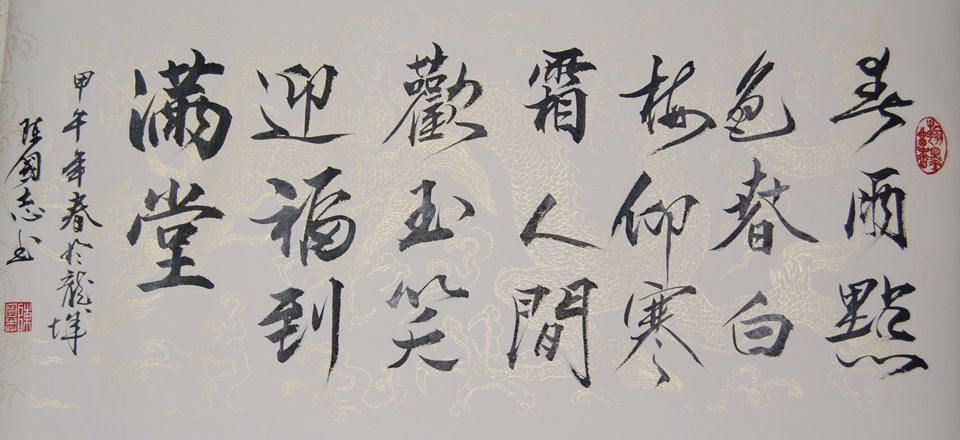 喜雨點
色春白
梅仰寒
霜人間
歡玉笑
迎福到
滿堂
甲午年春於龍
陳國志書